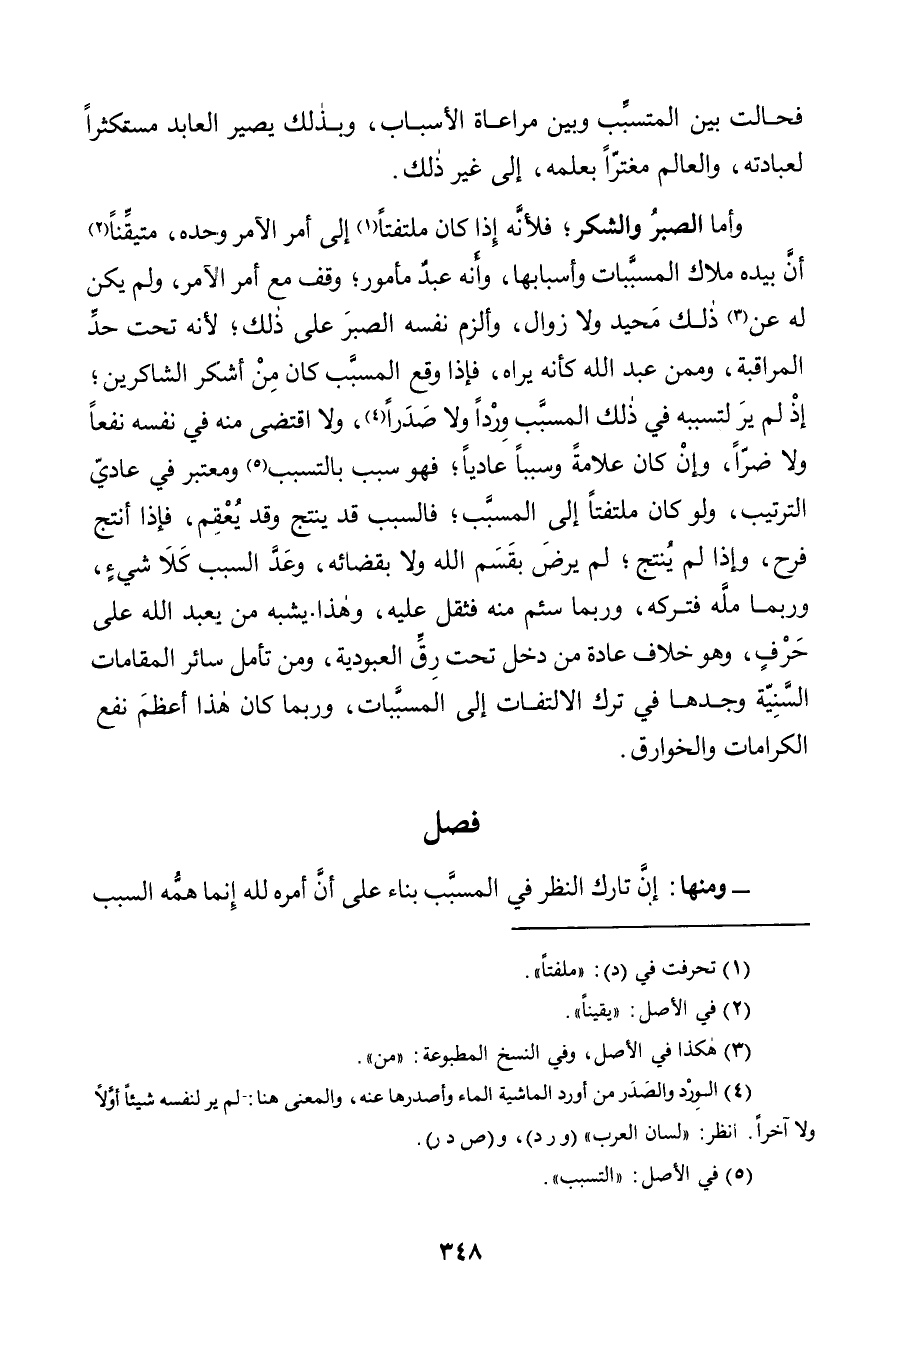 فحالت بين المتسبِّب وبين مراعاة الأسباب، وبذٰلك يصير العابد مستكثراً
لعبادته، والعالم مغترّاً بعلمه، إلى غير ذٰلك.
وأما الصبرُ والشكر؛ فلأنَّه إذا كان ملتفتاً(١) إلى أمر الآمر وحده، متيقِّناً(٢)
أنَّ بيده ملاك المسبَّبات وأسبابها، وأَنه عبدٌ مأمور؛ وقف مع أمر الآمر، ولم يكن
له عن(٣) ذٰلك مَحيد ولا زوال، وألزم نفسه الصبرَ على ذٰلك؛ لأنه تحت حدِّ
المراقبة، وممن عبد الله كأنه يراه، فإذا وقع المسبَّب كان مِنْ أشكر الشاكرين؛
إذْ لم يرَ لتسببه في ذٰلك المسبَّب وِرْداً ولا صَدَراً(٤)، ولا اقتضى منه في نفسه نفعاً
ولا ضرّاً، وإنْ كان علامةً وسبباً عادياً؛ فهو سبب بالتسبب(٥) ومعتبر في عاديّ
الترتيب، ولو كان ملتفتاً إلى المسبَّب؛ فالسبب قد ينتج وقد يُعْقِم، فإذا أنتج
فرح، وإذا لم يُنتج؛ لم يرضَ بقَسَم الله ولا بقضائه، وعَدَّ السبب كَلَا شيءٍ،
وربما ملَّه فتركه، وربما سئم منه فثقل عليه، وهٰذا يشبه من يعبد الله على
حَرْفٍ، وهو خلاف عادة من دخل تحت رِقِّ العبودية، ومن تأمل سائر المقامات
السَّنِيّة وجدها في ترك الالتفات إلى المسبَّبات، وربما كان هٰذا أعظمَ نفع
الكرامات والخوارق.
فصل
ـ ومنها: إنَّ تارك النظر في المسبَّب بناء على أنَّ أمره لله إنما همُّه السبب
(١) تحرفت في (د): «ملفتاً».
(٢) في الأصل: «يقيناً».
(٣) هٰكذا في الأصل، وفي النسخ المطبوعة: «من».
(٤) الوِرْد والصَدَر من أورد الماشية الماء وأصدرها عنه، والمعنى هنا: لم ير لنفسه شيئاً أوّلاً
ولا آخراً. انظر: «لسان العرب» (و ر د)، و(ص د ر).
(٥) في الأصل: «التسبب».
٣٤٨